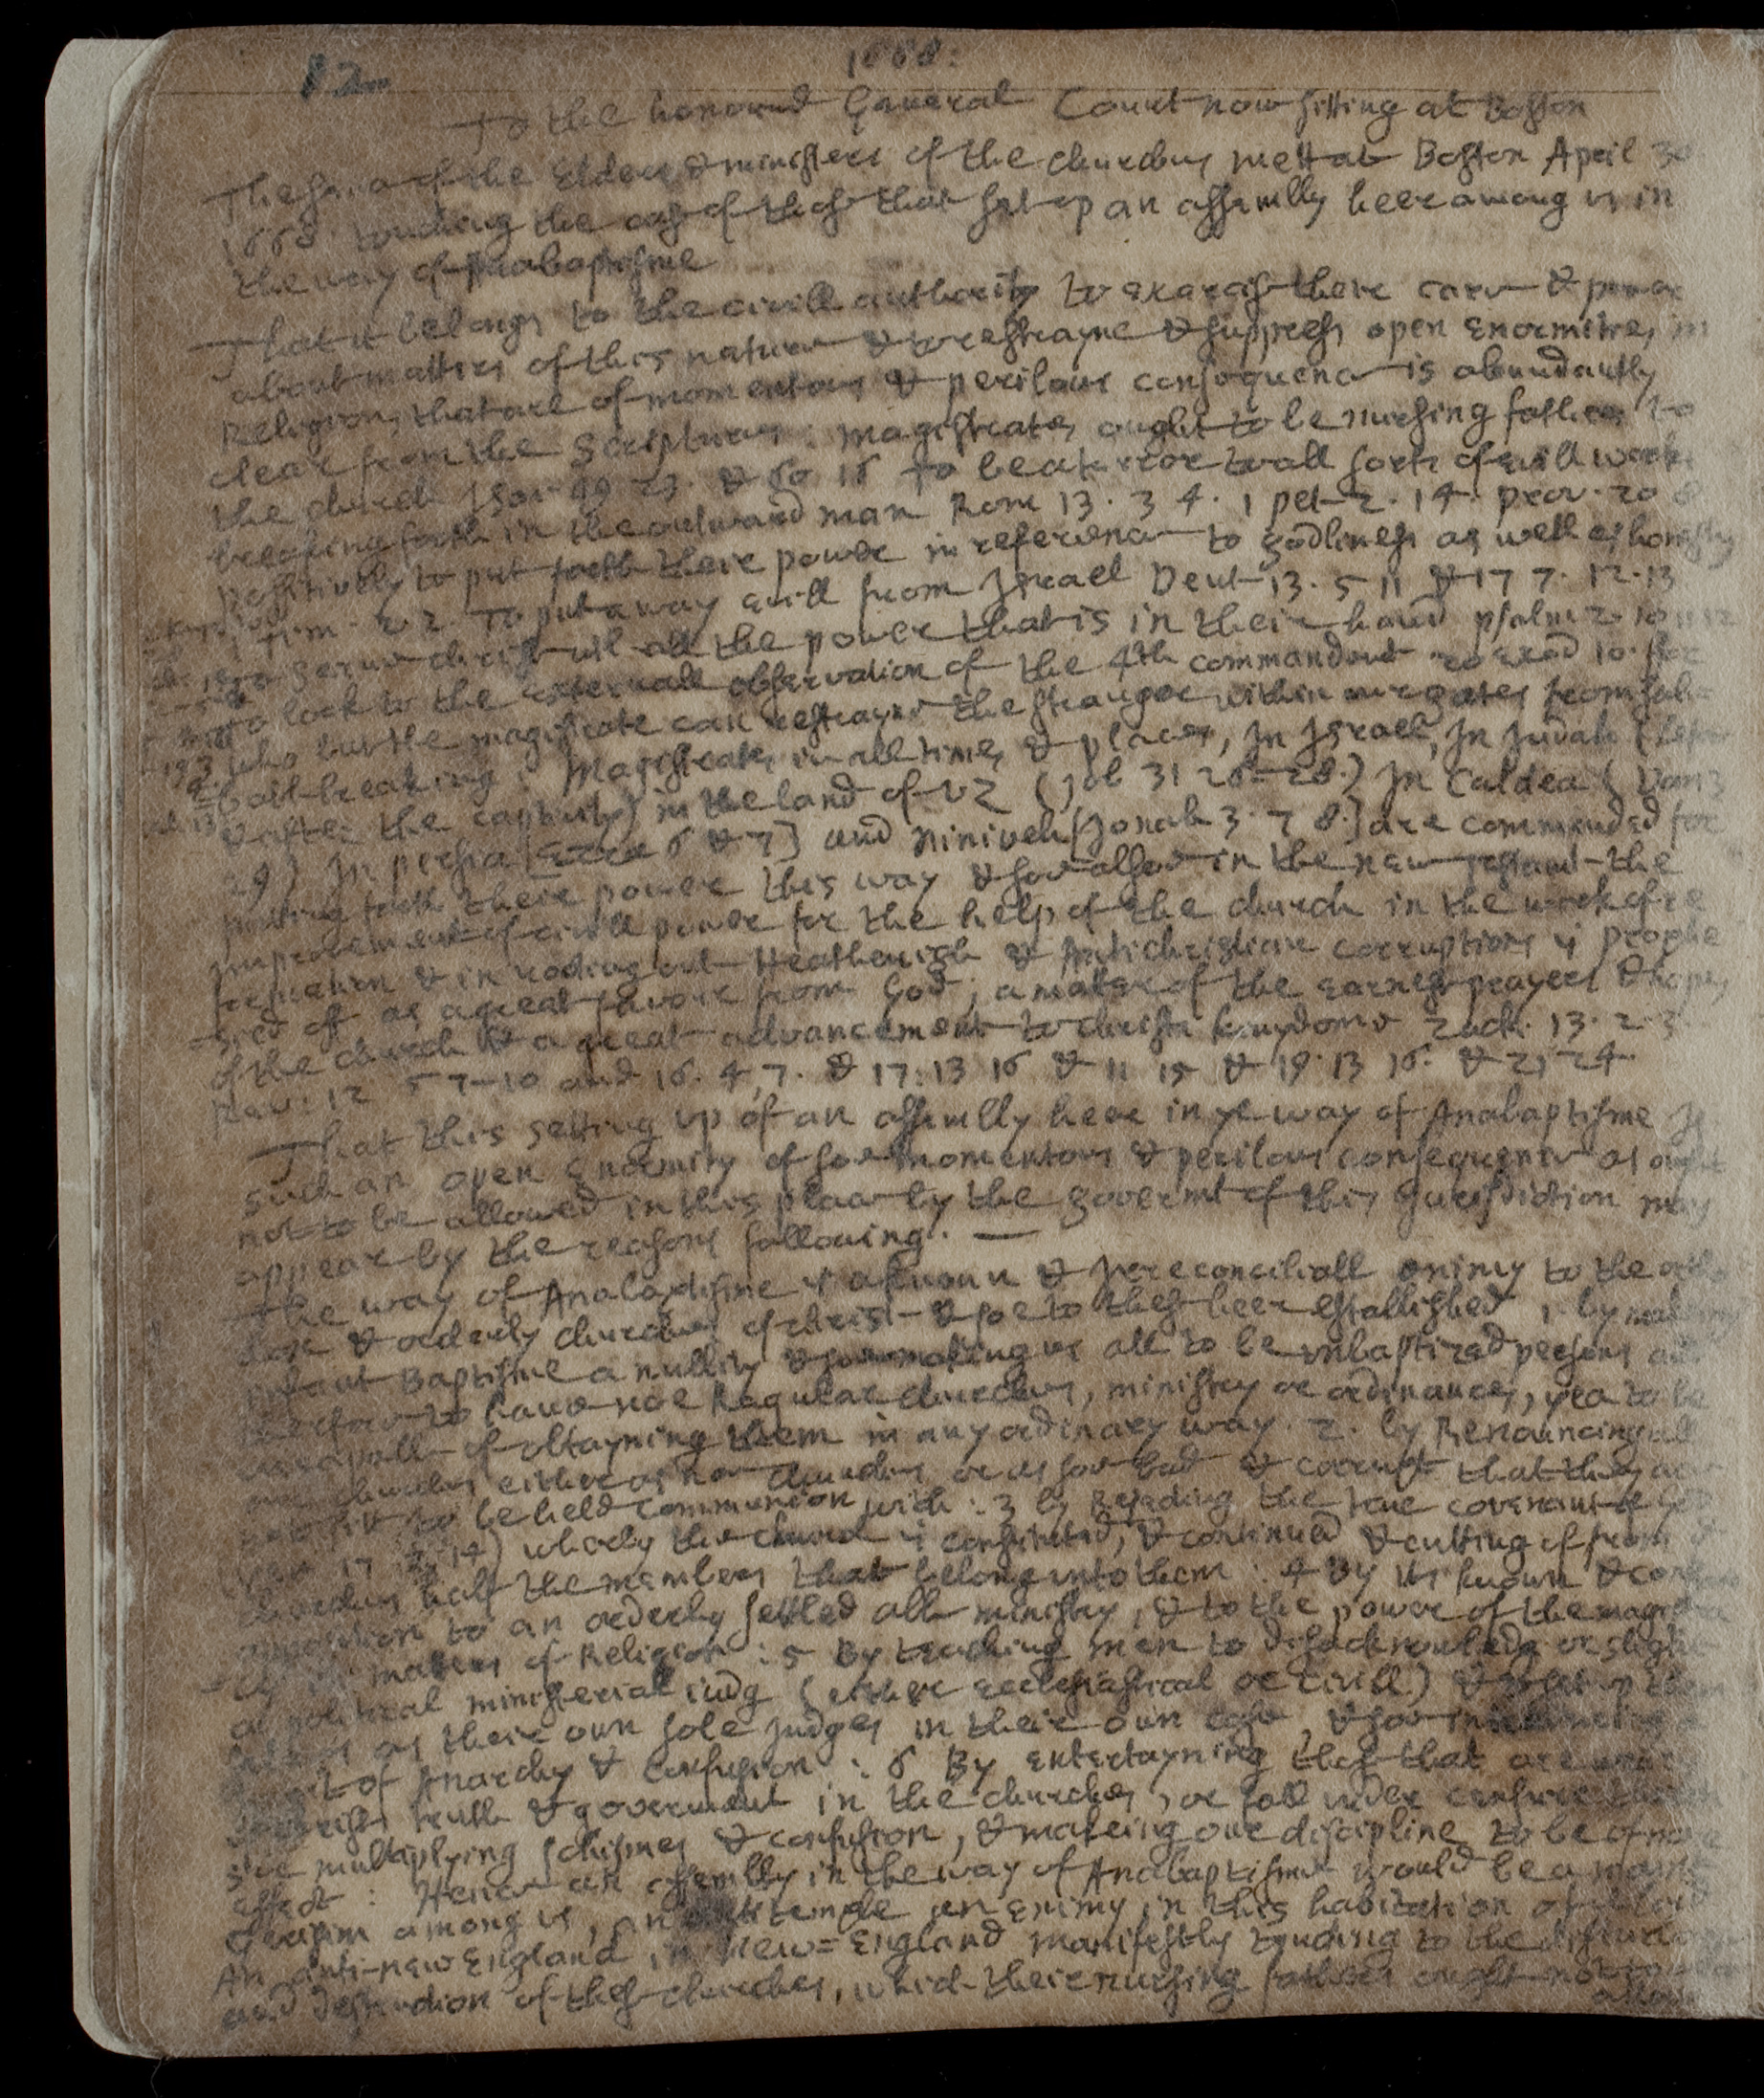 12
1668:
To the honored General Court now sitting at Boston
The sence of the Elders & ministers of the churches mett at Boston April 30
1668 touching the case of those that set up an assembly heer among us in
the way of Anabaptisme
That it belongs to the civill authority to exercise there care & power
about matters of this nature & to restrayne & suppress open enormities in
Religion, that are of momentous & perilous consequence is abundantly
clear from the scriptures: magistrates ought to be nursing fathers to
the church Isai 49 23. & 60 16 to be a terror to all sorts of evill works
breaking forth in the outward man Rom 13. 3 4. 1 pet 2. 14. prov. 20 8
positively to put forth their power in reference to godliness as well as honesty
1 tim. 2 2. To put away evill from Israel Deut 13. 5 11 & 17 7. 12. 13
to serve christ with all the power that is in their hand psalm 2 10 11 12
to look to the externall observation of the 4th commandmt exod 10 for
who but the magistrate can restrayne the stranger within our gates from sab=
=bath-breaking: Magistrates in all times & places, In Israel, In Judah (before
& after the captivity) in the land of UZ (Job 31 26-28.) In Caldea (Dan 3
29) In persia [Ezra 6 & 7] and Niniveh [Jonah 3. 7 8.] are commended for
putting forth their power this way & soe allsoe in the new testamt the
Improbement of civill power for the help of the church in the work of re
formation & in rooting out Heathenish & Antichristian corruptions is prophe
=sied of as a great favor from God, a matter of the earnest prayers & hopes
of the church & a great advancement to christs kingdome Zach. 13. 2 3
Rev: 12 5 7-10 and 16. 4,7. & 17: 13 16 & 11 15 & 19 13 16. & 21 24.
That this setting up of an assembly here in ye way of Anabaptisme Is
such an open Enormity of soe momentous & perilous consequence as ought
not to be allowed in this place by the governmt of this Jurisdiction may
appear by the reasons following. —
The way of Anabaptisme is a known & Irreconciliall enimy to the
& orderly churches of christ & soe to these heer established, 1. by making
infant Baptisme a nullity & soe making us all to be unbaptized persons and
to have noe Regular churches, ministry or ordinances, yea to be
of obtayning them in any ordinary way. 2. by Renouncing all
our churches either as no churches or as soe bad & corrupt that they are
not fit to be held communion with: 3 by Rejecting the true covenant of God
17 14) wherby the church is constituted, & continued & cutting off from
churches half the members that belong unto them: 4 By its known &
opposition to an orderly settled able ministry, & to the power of the magistrate
in matters of Religion: 5 By teaching men to disacknowledg or slight
all political ministerial iudg (either ecclesiastical or civill) & set up them
selves as their own sole judges in their own case, & soe introducing
of Anarchy & Confusion: 6 By entertayning those that are
christs truth & government in the churches, or fall under censure
soe multiplying schismes & confusion, & makeing our discipline to be of none
effect: Hence an assembly in the way of Anabaptisme would be a
among us, an enimy in this habitation of
An anti-new England in New=England manifestly tending to the
and destruction of these churches, which their nursing fathers ought not to
allow